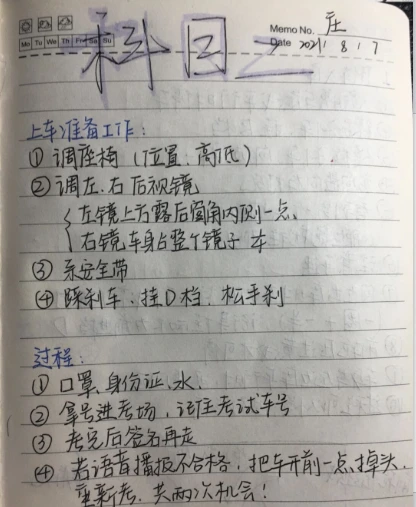 Memo No. 庄
Mo Tu We Th Fr Sa Su
Date 2021 8 1 7
科目二
上车准备工作：
① 调座椅（位置、高低）
② 调左、右后视镜
左镜上方露后窗角内侧一点、
右镜车身占整个镜子
③ 系安全带
④ 踩刹车、挂D档、松手刹
过程：
① 口罩、身份证、水、
② 拿号进考场，记住考试车号
③ 考完后签名再走
④ 若语音播报不合格，把车开前一点、掉头、
重新考、共两次机会！